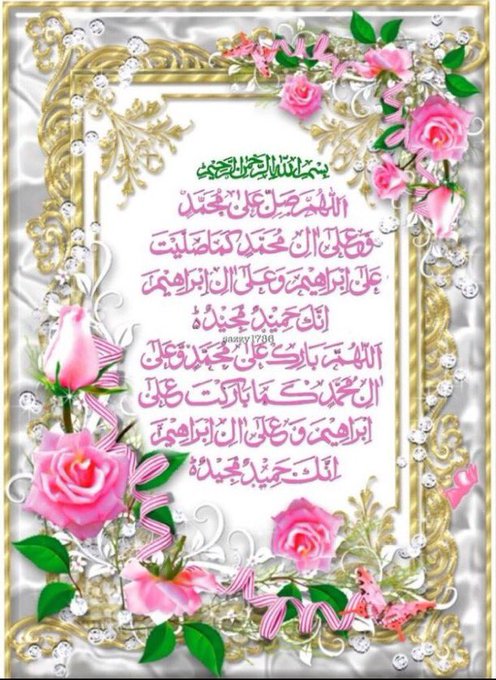 بِسْمِ اللّٰهِ الرَّحْمٰنِ الرَّحِيْمِ
اَللّٰهُمَّ صَلِّ عَلٰى مُحَمَّدٍ
وَّعَلٰى اٰلِ مُحَمَّدٍ كَمَا صَلَّيْتَ
عَلٰى اِبْرَاهِيْمَ وَعَلٰى اٰلِ اِبْرَاهِيْمَ
اِنَّكَ حَمِيْدٌ مَّجِيْدٌ
sanny1786
اَللّٰهُمَّ بَارِكْ عَلٰى مُحَمَّدٍ وَّعَلٰى
اٰلِ مُحَمَّدٍ كَمَا بَارَكْتَ عَلٰى
اِبْرَاهِيْمَ وَعَلٰى اٰلِ اِبْرَاهِيْمَ
اِنَّكَ حَمِيْدٌ مَّجِيْدٌ